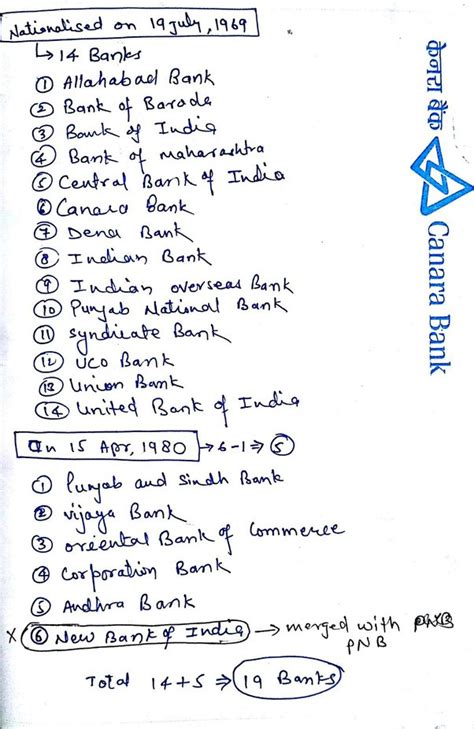 Nationalised on 19 July, 1969
↳ 14 Banks
① Allahabad Bank
② Bank of Baroda
③ Bank of India
④ Bank of maharashtra
⑤ Central Bank of India
⑥ Canara Bank
⑦ Dena Bank
⑧ Indian Bank
⑨ Indian overseas Bank
⑩ Punjab National Bank
⑪ Syndicate Bank
⑫ UCO Bank
⑬ Union Bank
⑭ United Bank of India
On 15 Apr, 1980 → 6-1 ⇒ ⑤
① Punjab and Sindh Bank
② Vijaya Bank
③ oriental Bank of Commerce
④ Corporation Bank
⑤ Andhra Bank
X ⑥ New Bank of India → merged with
PNB
Total 14+5 ⇒ 19 Banks
केनरा बैंक Canara Bank